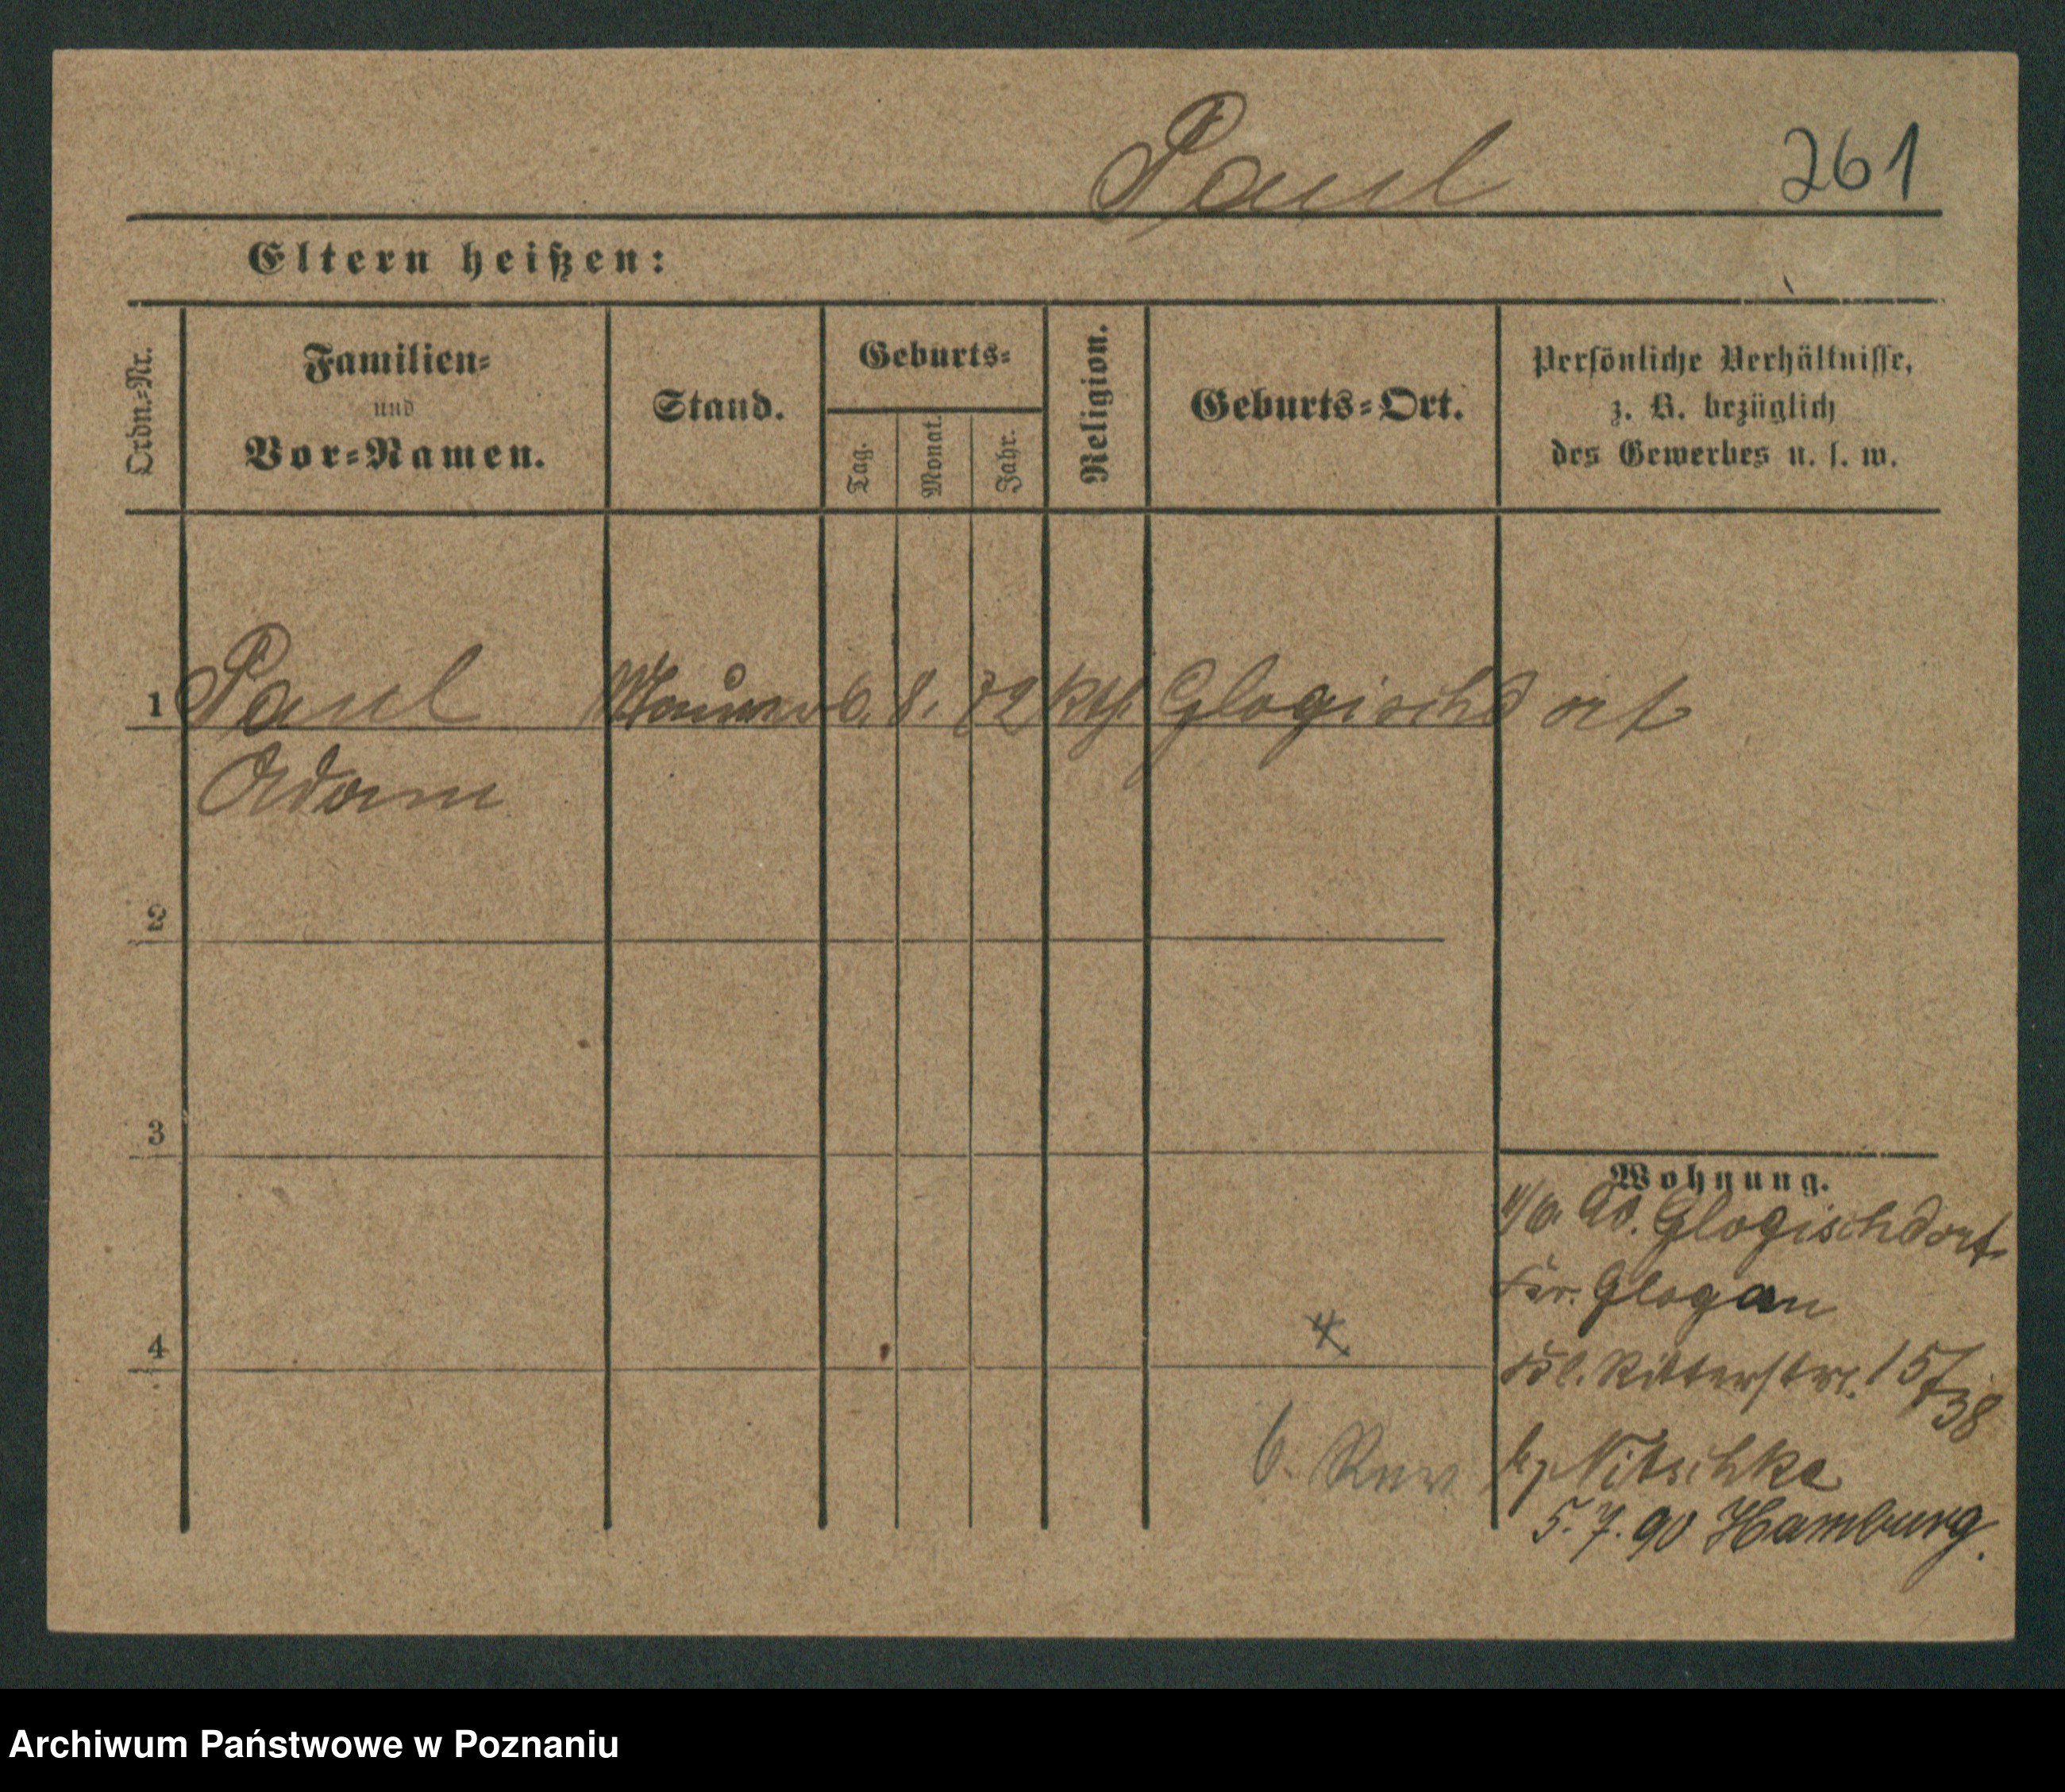 Paul 261
Eltern heißen:
Ordn.-Nr. Familien- und Vor-Namen. Stand. Geburts- Tag. Monat. Jahr. Religion. Geburts-Ort. Persönliche Verhältnisse, z. B. bezüglich des Gewerbes u. s. w.
1 Paul Maurer 6. 8. 72 kth. Glogischdorf
Adam
2
3
Wohnung.
90. Glogischdorf
Kr. Glogau
4
Kl. Ritterstr. 15/38
6. Rev
b/ Nitschke
5. 7. 90 Hamburg.
Archiwum Państwowe w Poznaniu